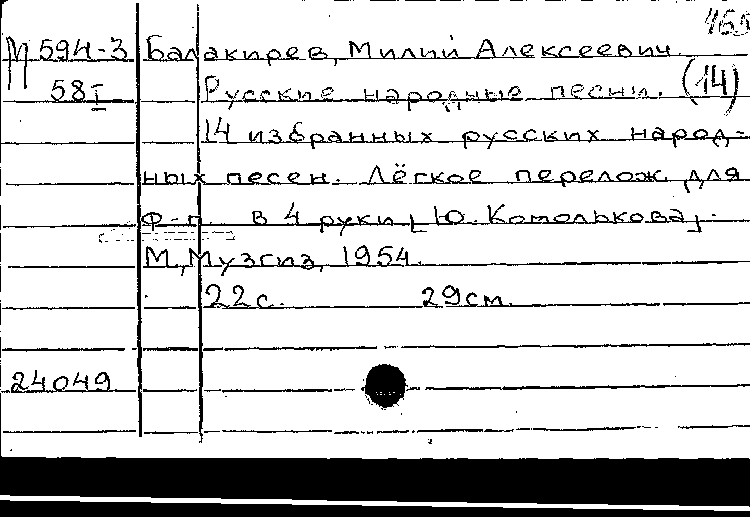 М 594-3 Балакирев, Милий Алексеевич.
58I Русские народные песни. (14)
14 избранных русских народ-
ных песен. Лёгкое перелож. для
ф-п. в 4 руки [Ю. Комолькова].
М., Музгиз, 1954.
22с. 29см.
24049